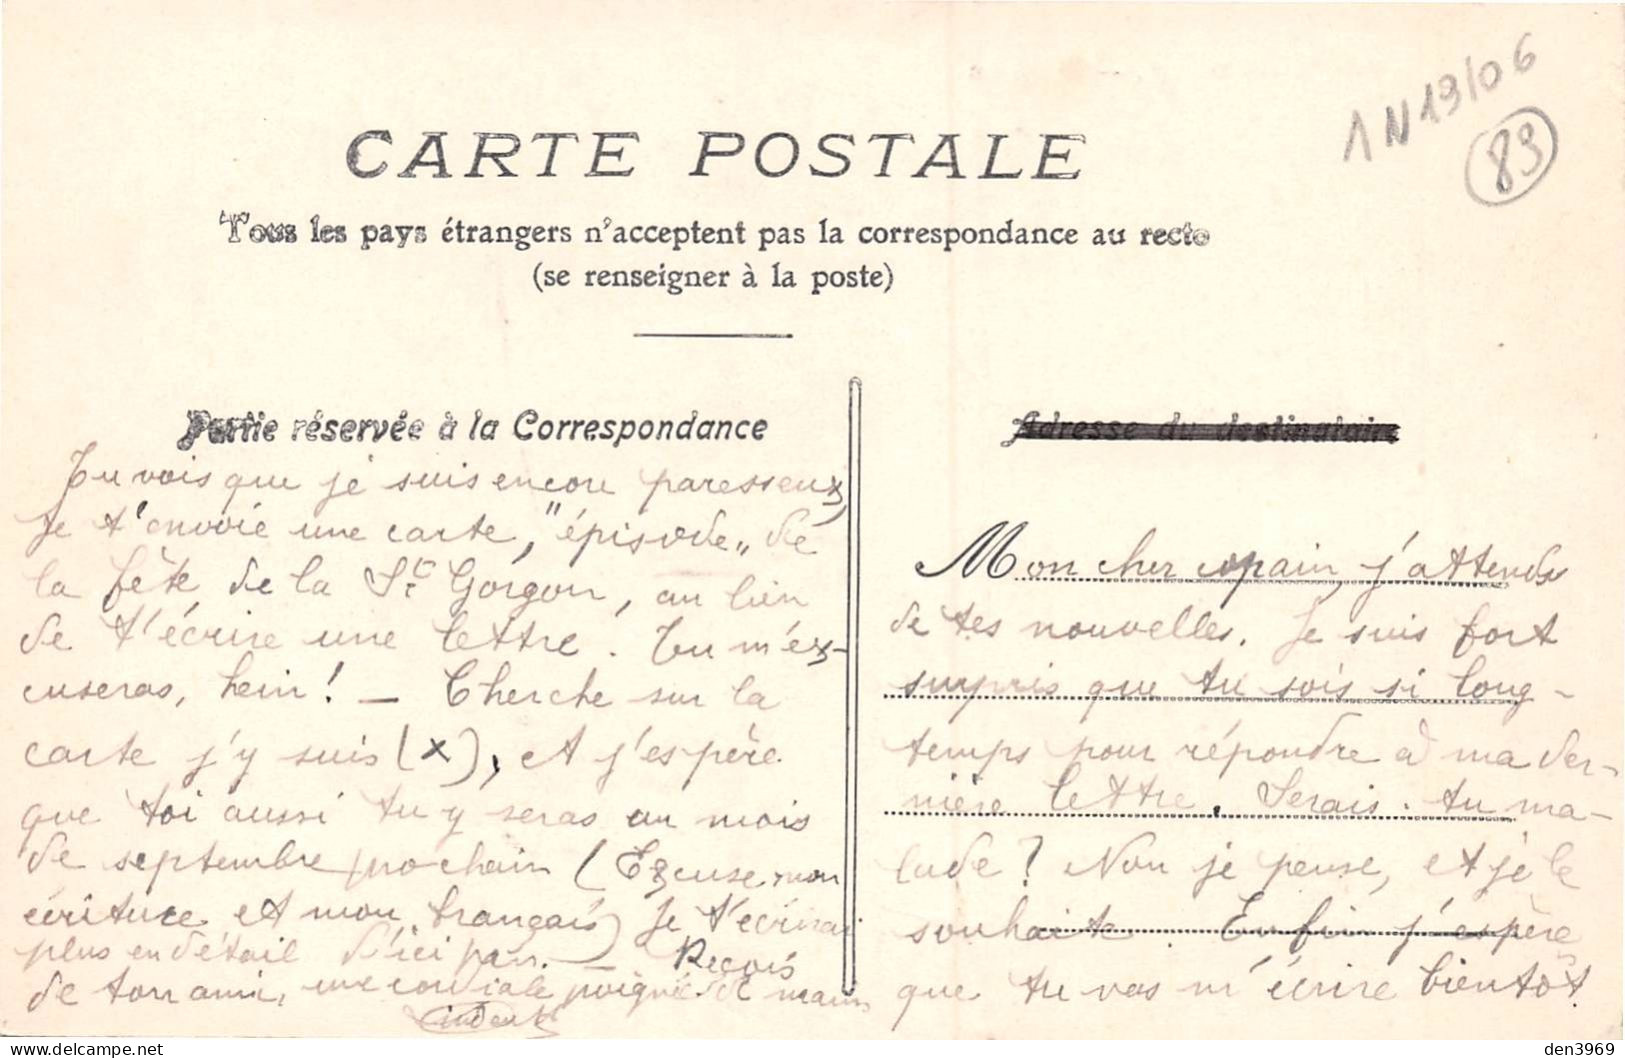 1 N 19/06
83
CARTE POSTALE
Tous les pays étrangers n'acceptent pas la correspondance au recto
(se renseigner à la poste)
Partie réservée à la Correspondance
Adresse du destinataire
Tu vois que je suis encore paresseux,
Je t'envoie une carte, "épisode" de
la fête de la St Gorgon, au lieu
de t'écrire une lettre. Tu m'ex-
cuseras, hein! — Cherche sur la
carte j'y suis (x), et j'espère
que toi aussi tu y seras au mois
de septembre prochain (Excuse mon
écriture et mon français) Je t'écrirai
plus en détail d'ici peu. — Reçois
de ton ami, une cordiale poignée de main
Mon cher copain, j'attends
de tes nouvelles. Je suis fort
surpris que tu sois si long-
temps pour répondre à ma der-
nière lettre. Serais-tu ma-
lade? Non je pense, et je le
souhaite. Enfin j'espère
que tu vas m'écrire bientôt.
den3969